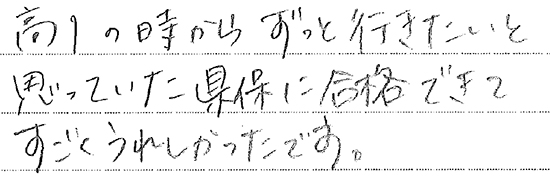 高1の時からずっと行きたいと
思っていた県保に合格できて
すごくうれしかったです。